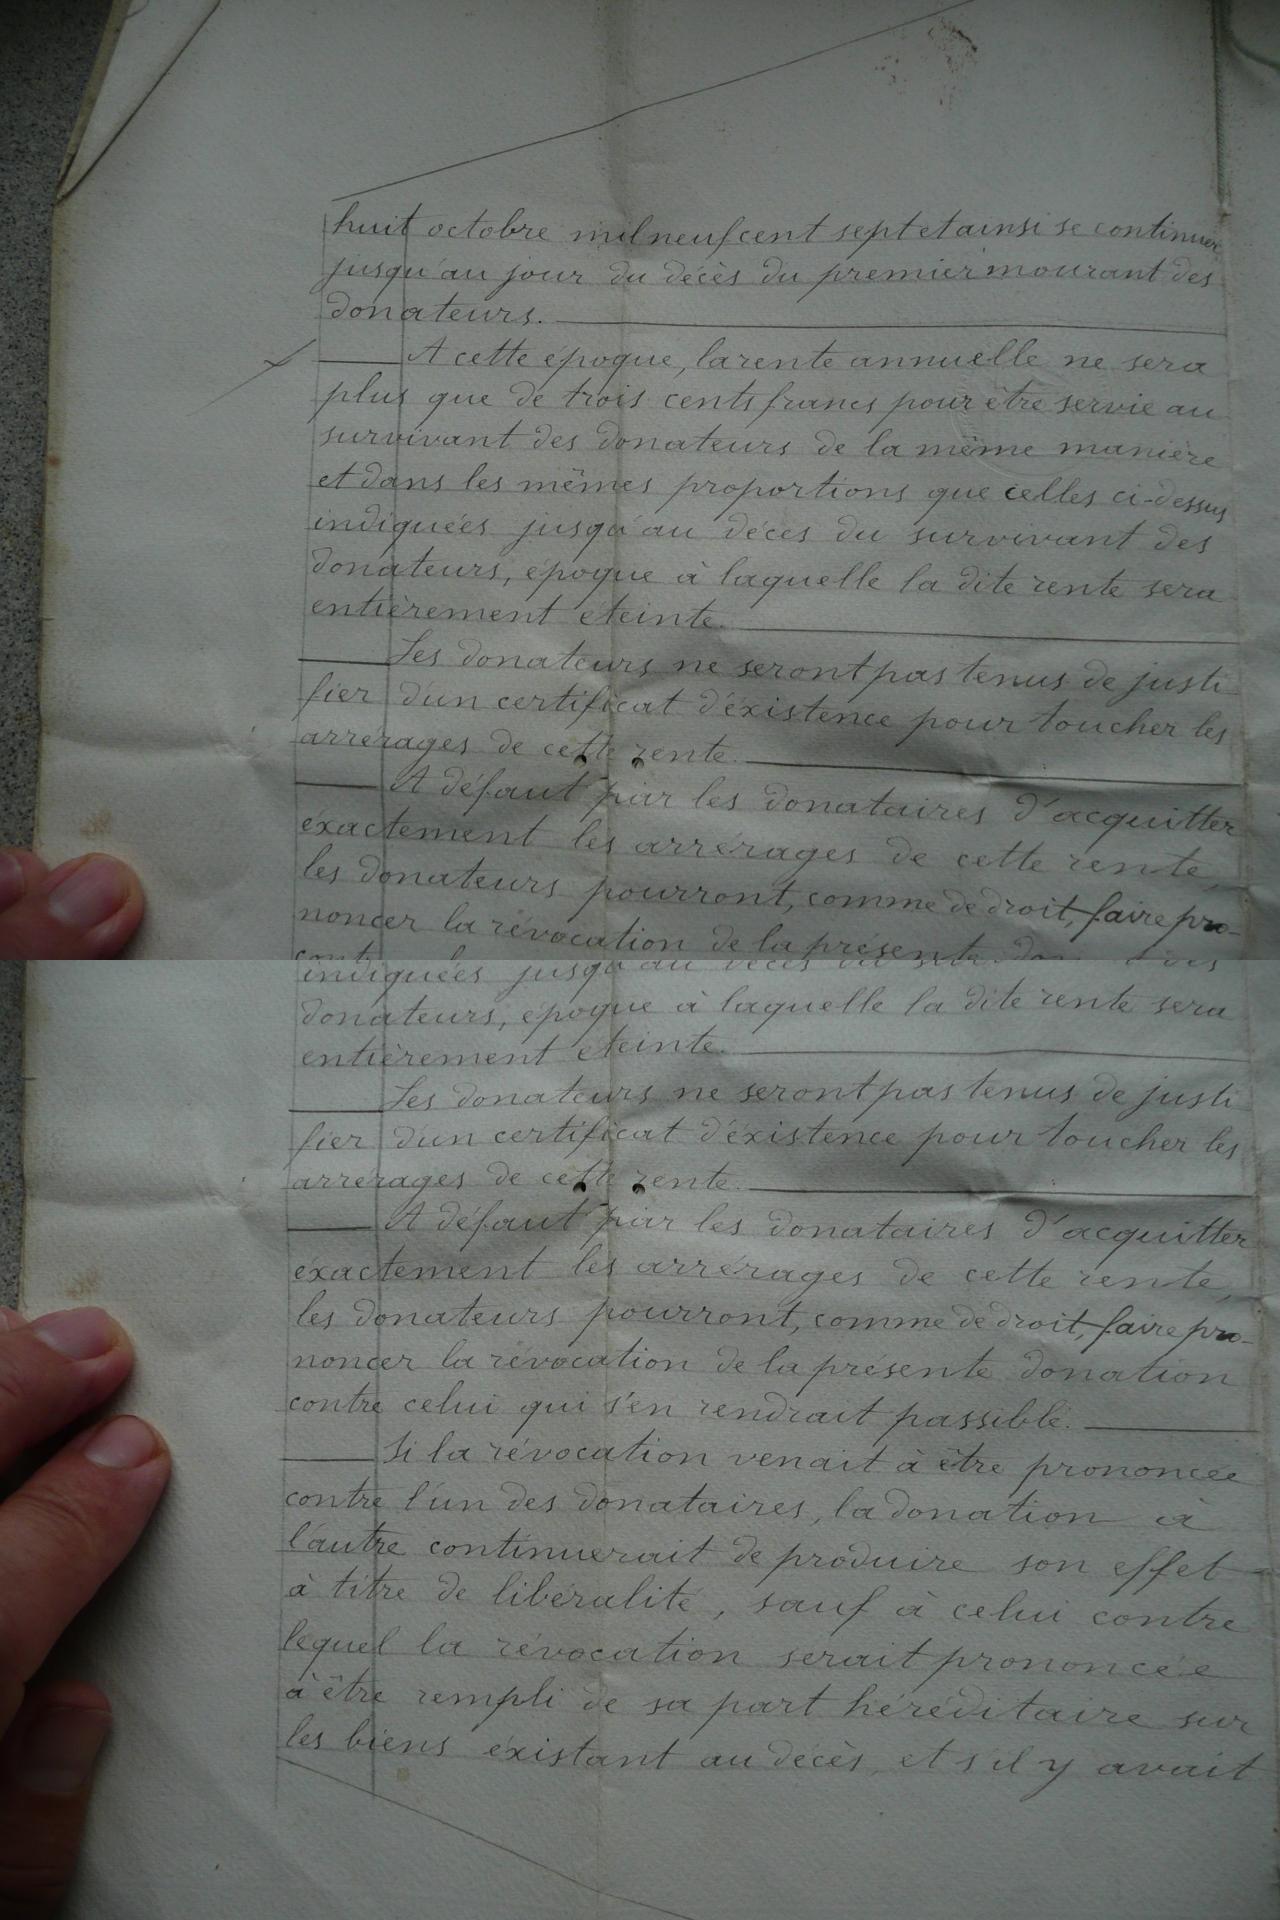 huit octobre mil neuf cent sept et ainsi se continuer
jusqu'au jour du décès du premier mourant des
donateurs.
A cette époque, la rente annuelle ne sera
plus que de trois cents francs pour être servie au
survivant des donateurs de la même manière
et dans les mêmes proportions que celles ci-dessus
indiquées jusqu'au décès du survivant des
donateurs, époque à laquelle la dite rente sera
entièrement éteinte.
Les donateurs ne seront pas tenus de justi
fier d'un certificat d'éxistence pour toucher les
arrérages de cette rente.
A défaut par les donataires d'acquitter
éxactement les arrérages de cette rente,
les donateurs pourront, comme de droit, faire pro-
noncer la révocation de la présente
indiquées jusqu'au décès du
donateurs, époque à laquelle la dite rente sera
entièrement éteinte.
Les donateurs ne seront pas tenus de justi
fier d'un certificat d'éxistence pour toucher les
arrérages de cette rente.
A défaut par les donataires d'acquitter
éxactement les arrérages de cette rente,
les donateurs pourront, comme de droit, faire pro-
noncer la révocation de la présente donation
contre celui qui s'en rendrait passible.
Si la révocation venait à être prononcée
contre l'un des donataires, la donation à
l'autre continuerait de produire son effet
à titre de libéralité, sauf à celui contre
lequel la révocation serait prononcée
à être rempli de sa part héréditaire sur
les biens éxistant au décès, et s'il y avait